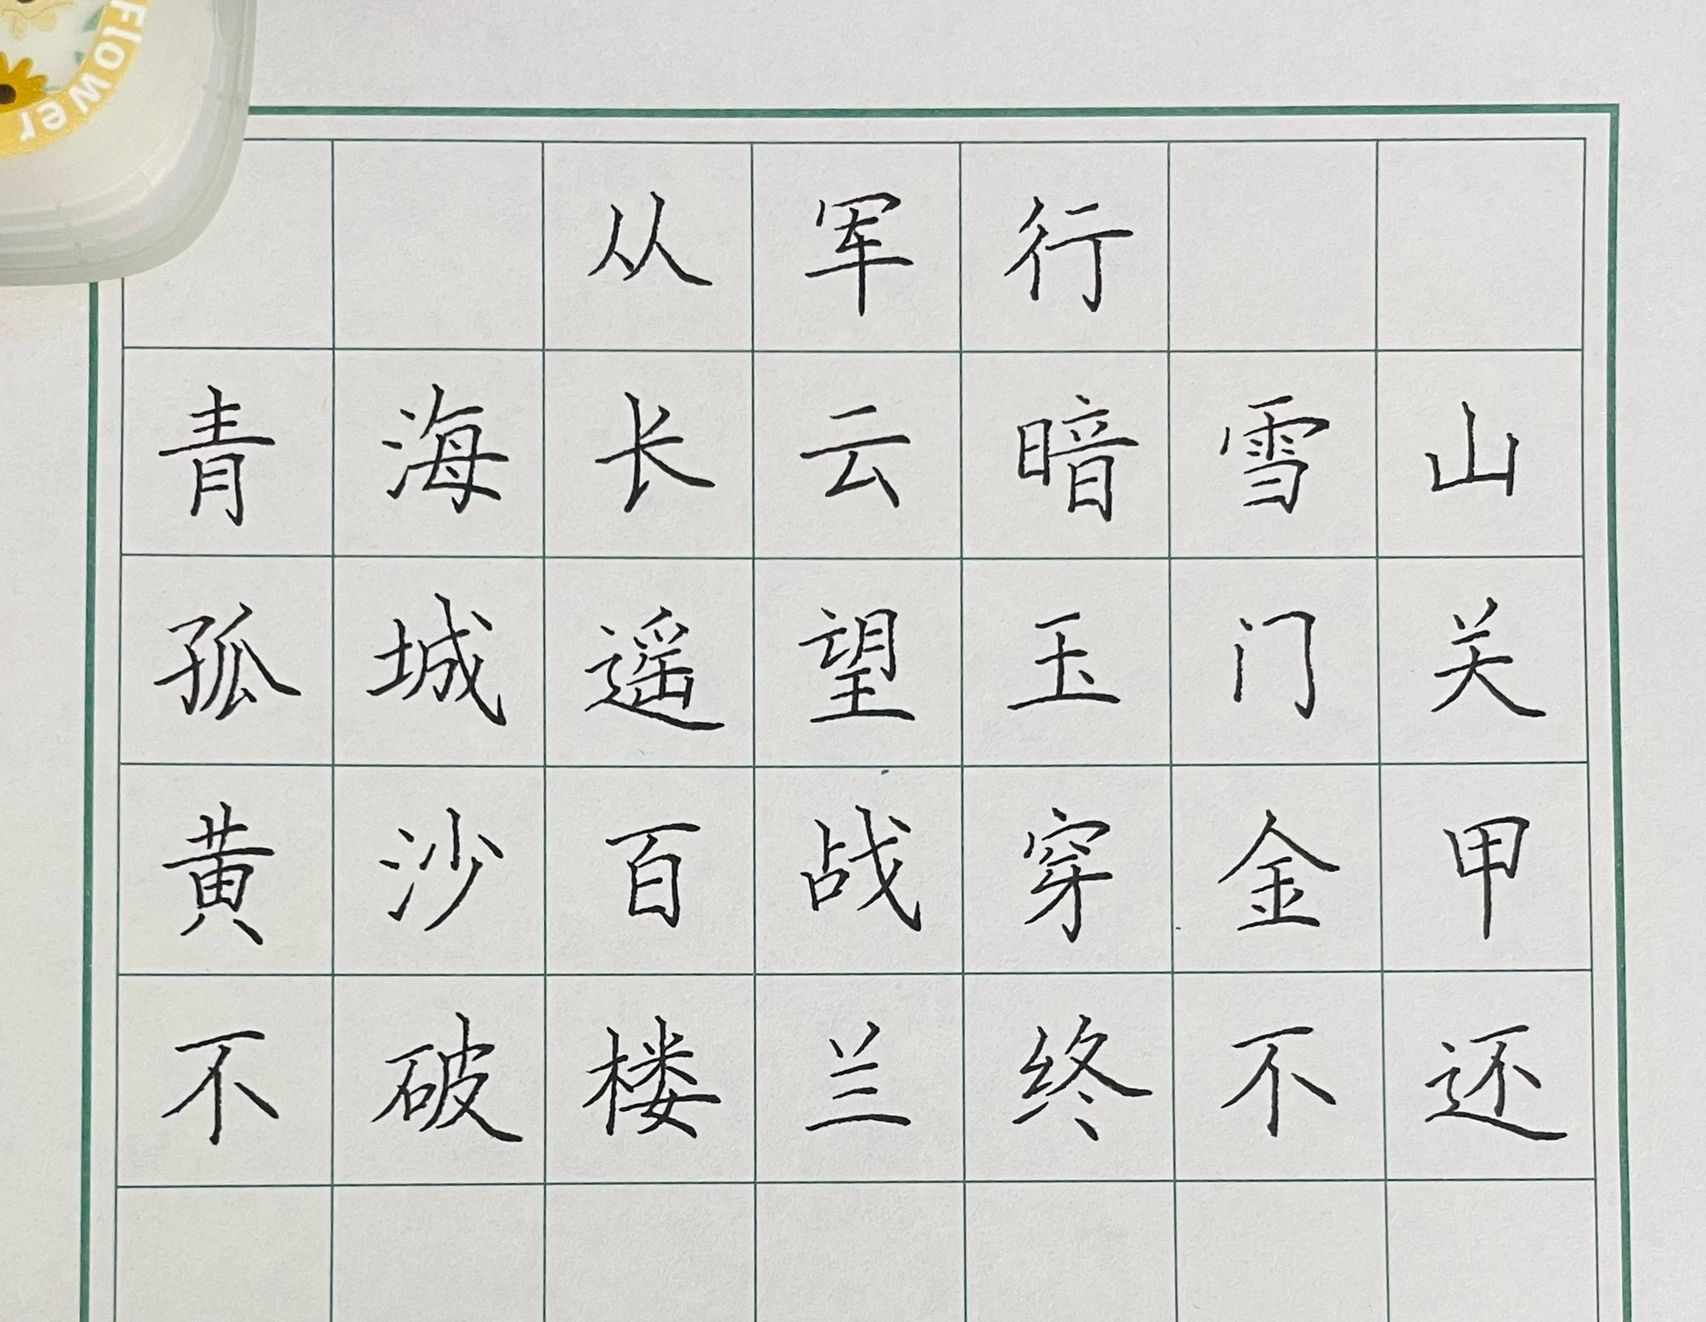 Flower
从军行
青海长云暗雪山
孤城遥望玉门关
黄沙百战穿金甲
不破楼兰终不还